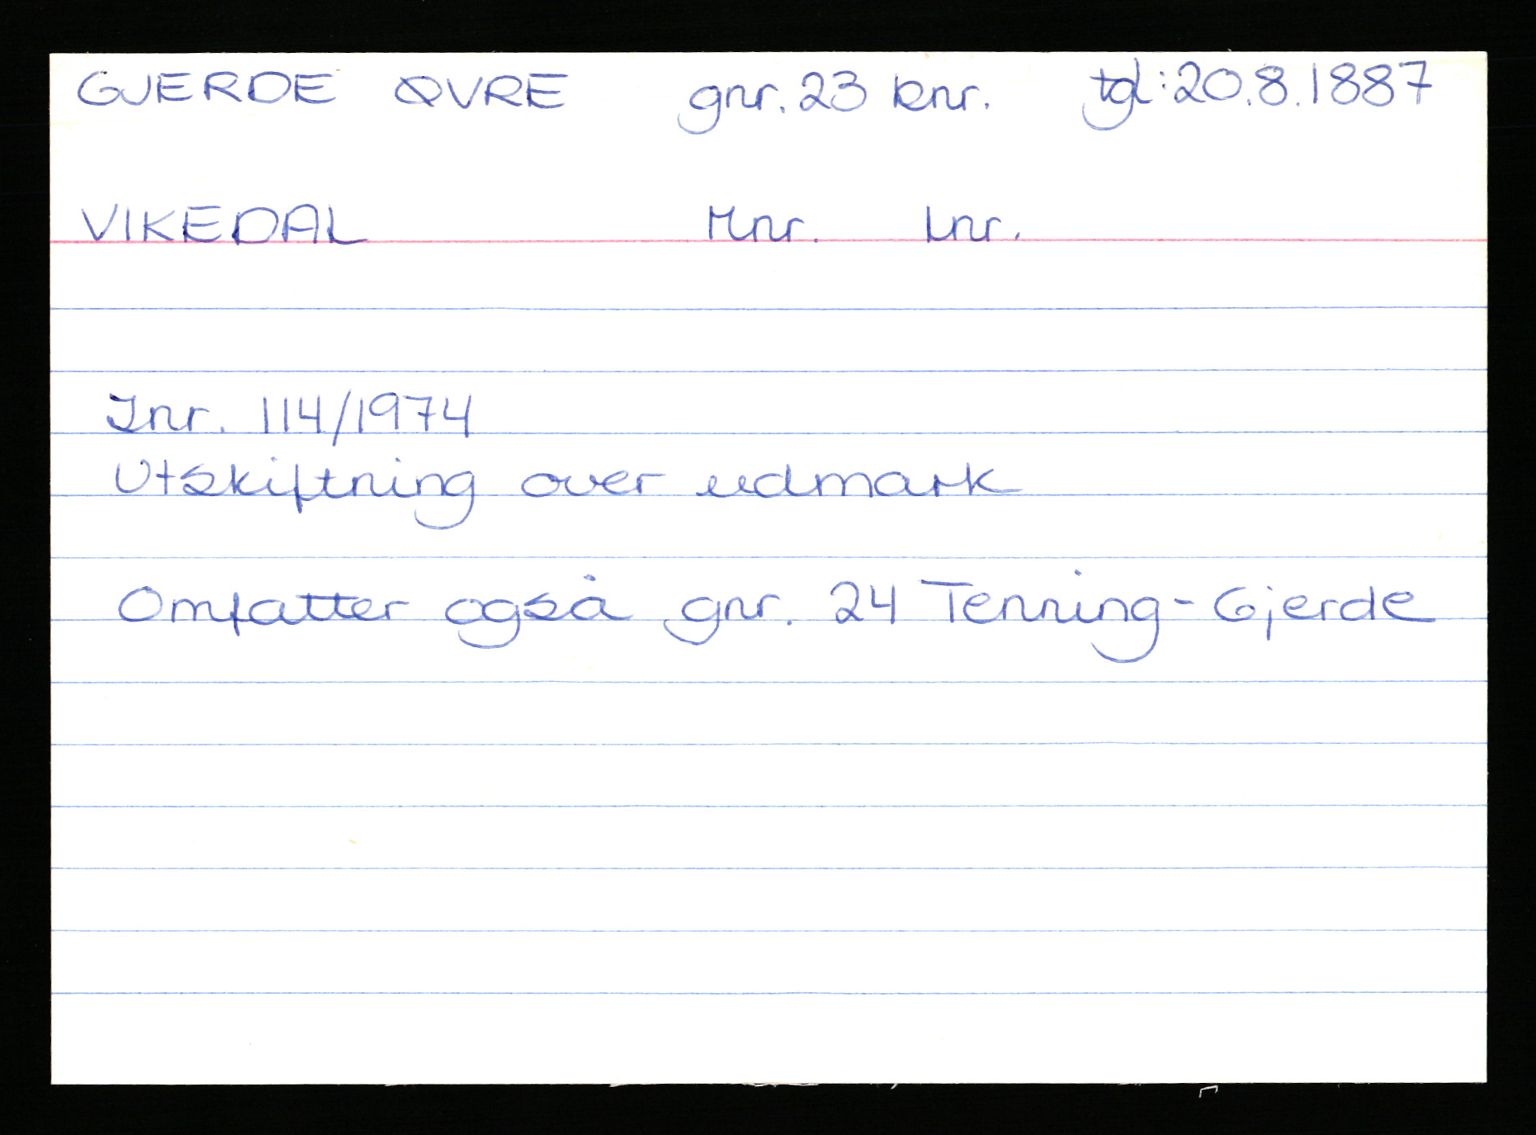 GJERDE ØVRE gnr. 23 bnr. tgl: 20.8.1887
VIKEDAL Mnr. Lnr.
Jnr. 114/1974
Utskiftning over udmark
Omfatter også gnr. 24 Tenning-Gjerde